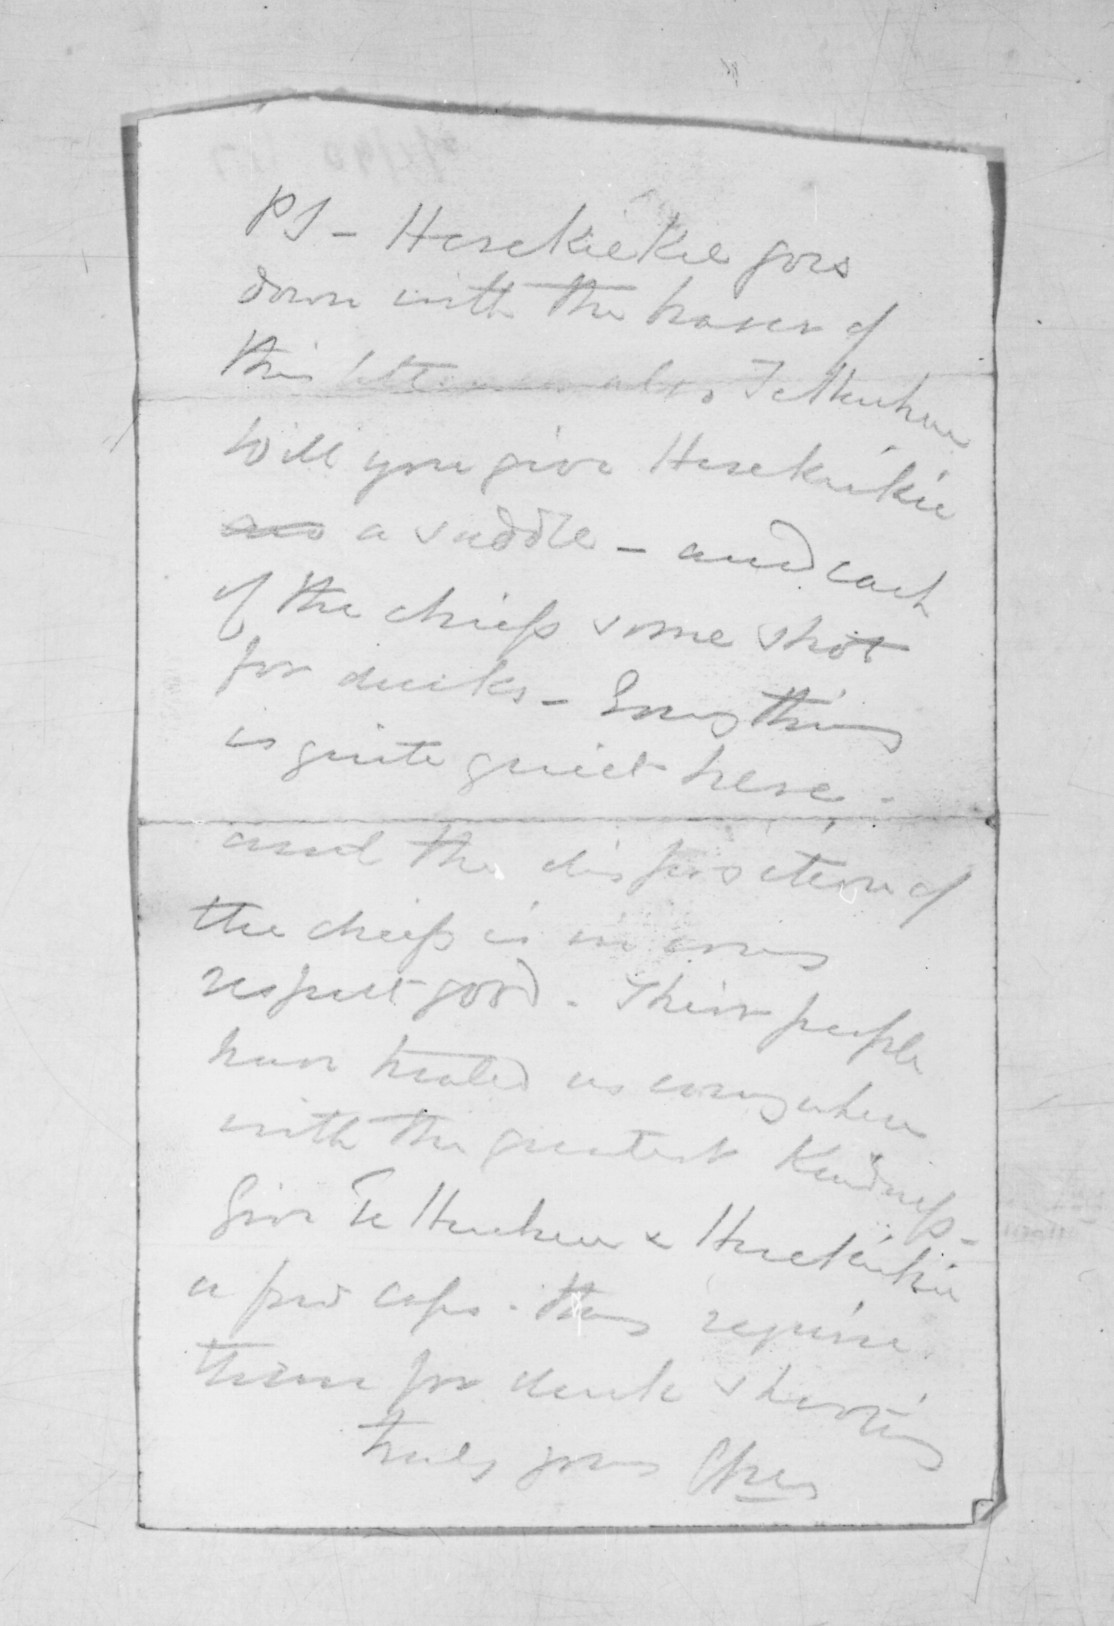 PS - Hesekiekie goes
down with the bearer of
this letter as also Te Heuheu
Will you give Hesekiekie
a saddle - and each
of the chiefs some shot
for ducks - Every thing
is quite quiet here -
and the disposition of
the chiefs is in every
respect good - Their people
have treated us everywhere
with the greatest Kindness -
Give Te Heuheu & Hesekiekie
a few caps - they require
them for duck shooting
truly yours